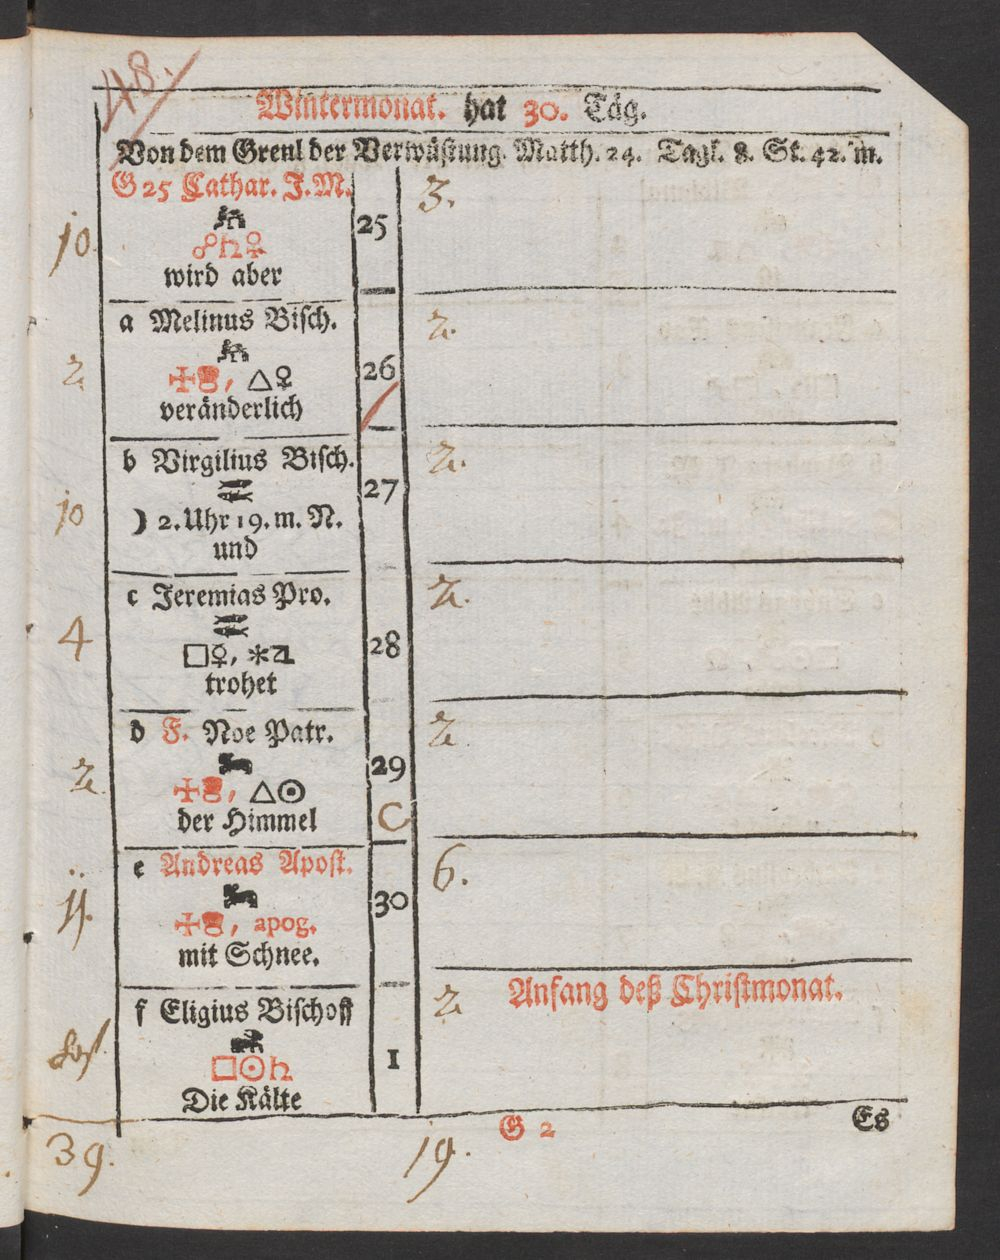 48.
Wintermonat. hat 30. Täg.
Von dem Greul der Verwüstung. Matth. 24. Tagl. 8. St. 42. m.
G 25 Cathar. J. M.
10
25
3.
☍♄♀
wird aber
a Melinus Bisch.
2
26
2.
, △♀
veränderlich
b Virgilius Bisch.
10
27
2.
☽ 2. Uhr 19. m. N.
und
c Jeremias Pro.
4
28
2.
□♀, ✱♃
trohet
d F. Noe Patr.
2
29
2
, △☉
der Himmel
C
e Andreas Apost.
11.
30
6.
, apog.
mit Schnee.
f Eligius Bischoff
1
2
Anfang deß Christmonat.
□☉♄
Die Kälte
G 2
Es
39.
19.